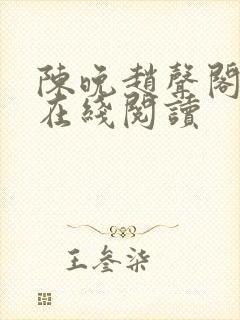 陳晚趙聲閣
在綫閱讀
王叄柒